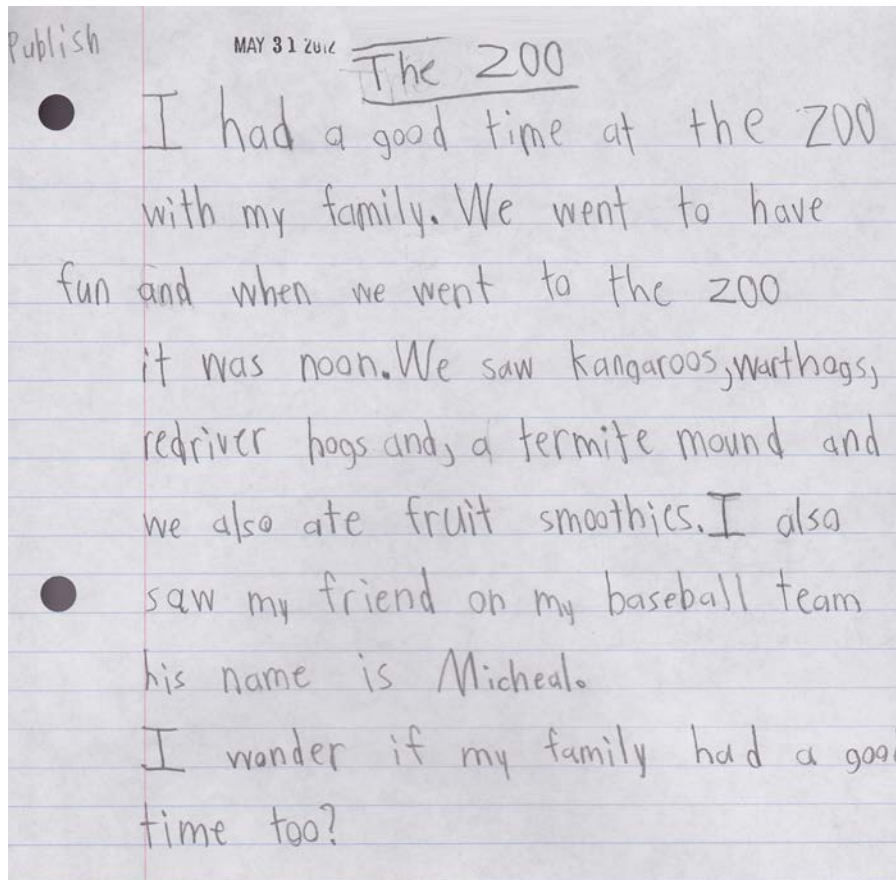 Publish
MAY 31 2012 The Zoo
I had a good time at the zoo
with my family. We went to have
fun and when we went to the zoo
it was noon. We saw kangaroos, warthogs,
redriver hogs and, a termite mound and
we also ate fruit smoothies. I also
saw my friend on my baseball team
his name is Micheal.
I wonder if my family had a good
time too?